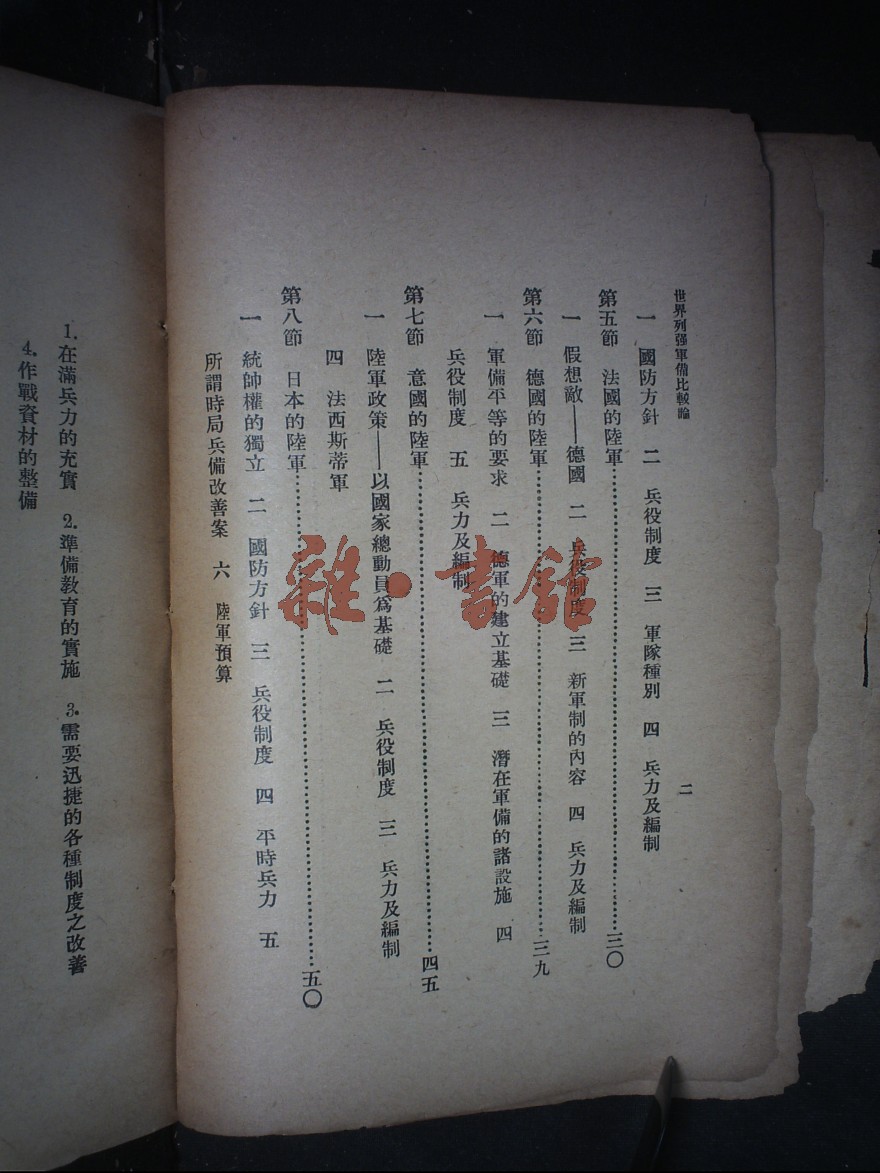 世界列强軍備比較論
二
一　國防方針　二　兵役制度　三　軍隊種別　四　兵力及編制
第五節　法國的陸軍……三〇
一　假想敵——德國　二　兵役制度　三　新軍制的內容　四　兵力及編制
第六節　德國的陸軍……三九
一　軍備平等的要求　二　德軍的建立基礎　三　潛在軍備的諸設施　四
兵役制度　五　兵力及編制
第七節　意國的陸軍……四五
一　陸軍政策——以國家總動員爲基礎　二　兵役制度　三　兵力及編制
四　法西斯蒂軍
第八節　日本的陸軍……五〇
一　統帥權的獨立　二　國防方針　三　兵役制度　四　平時兵力　五
所謂時局兵備改善案　六　陸軍預算
1.在滿兵力的充實　2.準備教育的實施　3.需要迅捷的各種制度之改善
4.作戰資材的整備
雜·書館